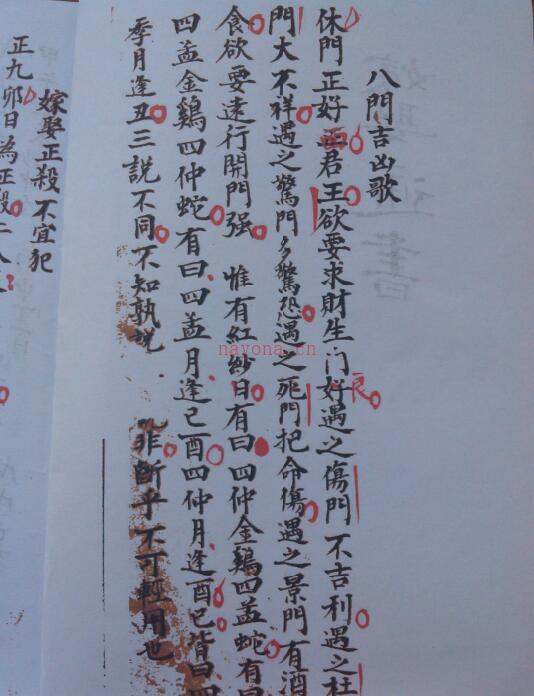 八門吉凶歌
休門正好面君王欲要求財生门好良遇之傷門不吉利遇之杜
門大不祥遇之驚門多驚恐遇之死門把命傷遇之景門有酒
食欲要遠行開門强 惟有紅紗日有曰四仲金鷄四孟蛇有曰
四孟金鷄四仲蛇有曰四孟月逢已酉四仲月逢酉已皆曰四
季月逢丑三説不同不知孰説 非断乎不可輕用也
嫁娶正殺不宜犯
正九卯日為正殺二八
nayona.cn